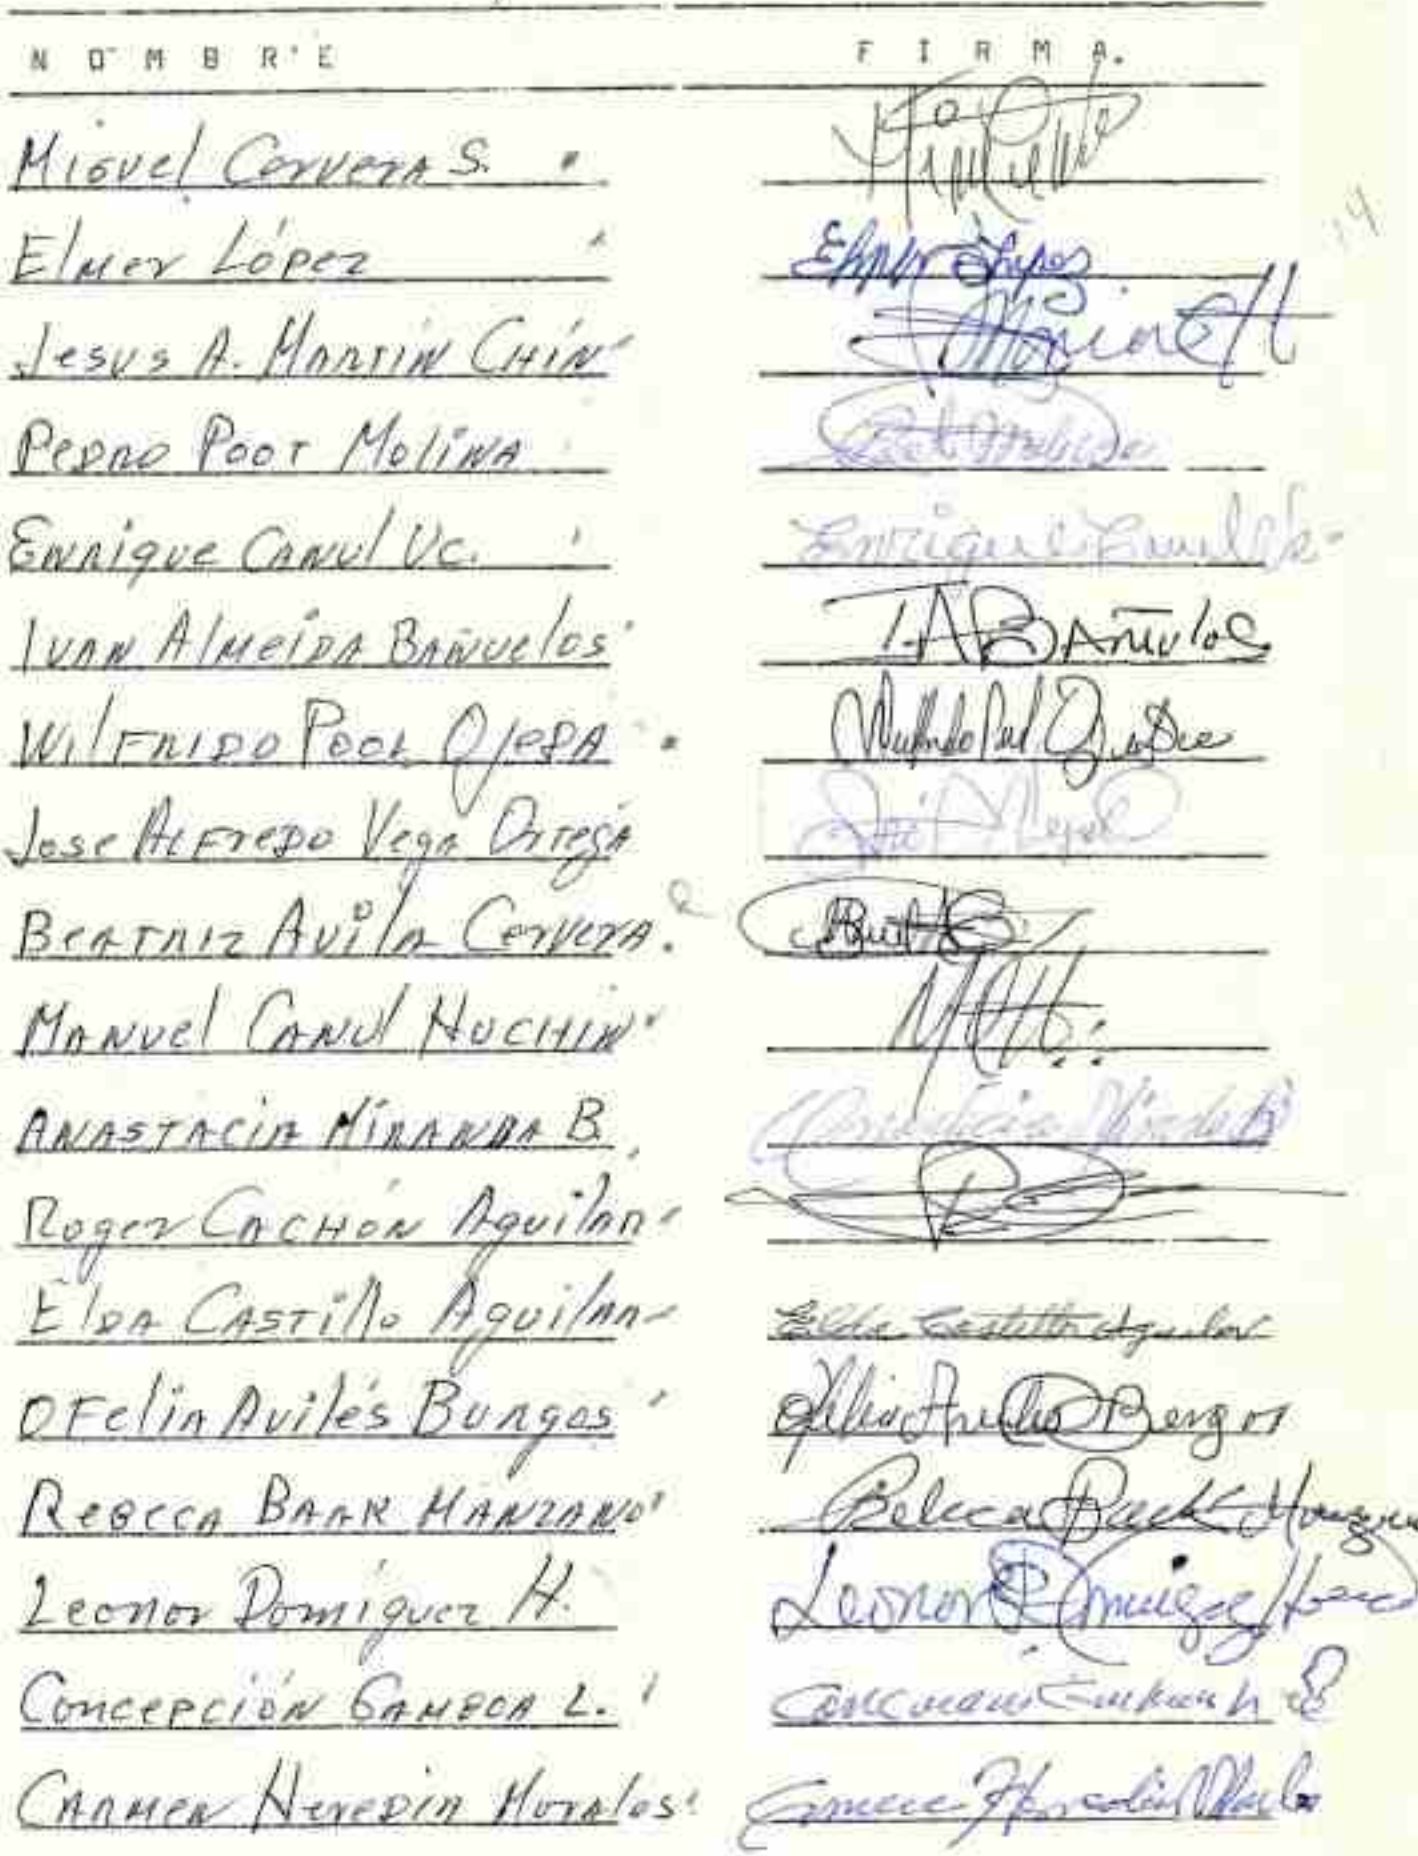 NOMBRE FIRMA.
Miguel Cervera S.
Elmer López Elmer López
Jesus A. Martin Chin
Pedro Poot Molina Poot Molina
Enrique Canul Uc. Enrique Canul Uc.
Ivan Almeida Bañuelos I.A Bañulos
Wilfrido Pool Ojeda Wilfrido Pool Ojeda
Jose Alfredo Vega Ortega
Beatriz Avila Cervera.
Manuel Canul Huchin MCH.
Anastacia Miranda B. Anastacia Miranda B
Roger Cachón Aguilar
Elda Castillo Aguilar Elda Castillo Aguilar
Ofelia Avilés Burgos Ofelia Burgos
Rebeca Baak Manzano Rebeca Baak Manzano
Leonor Domiguez H. Leonor Domiguez
Concepción Gamboa L. Concepcion Gamboa L
Carmen Heredia Morales Carmen Heredia Morales